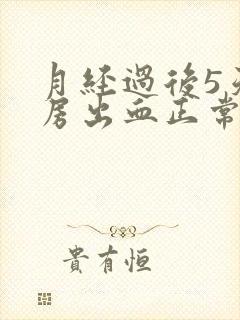 月経過後5天
房出血正常
貴有恒